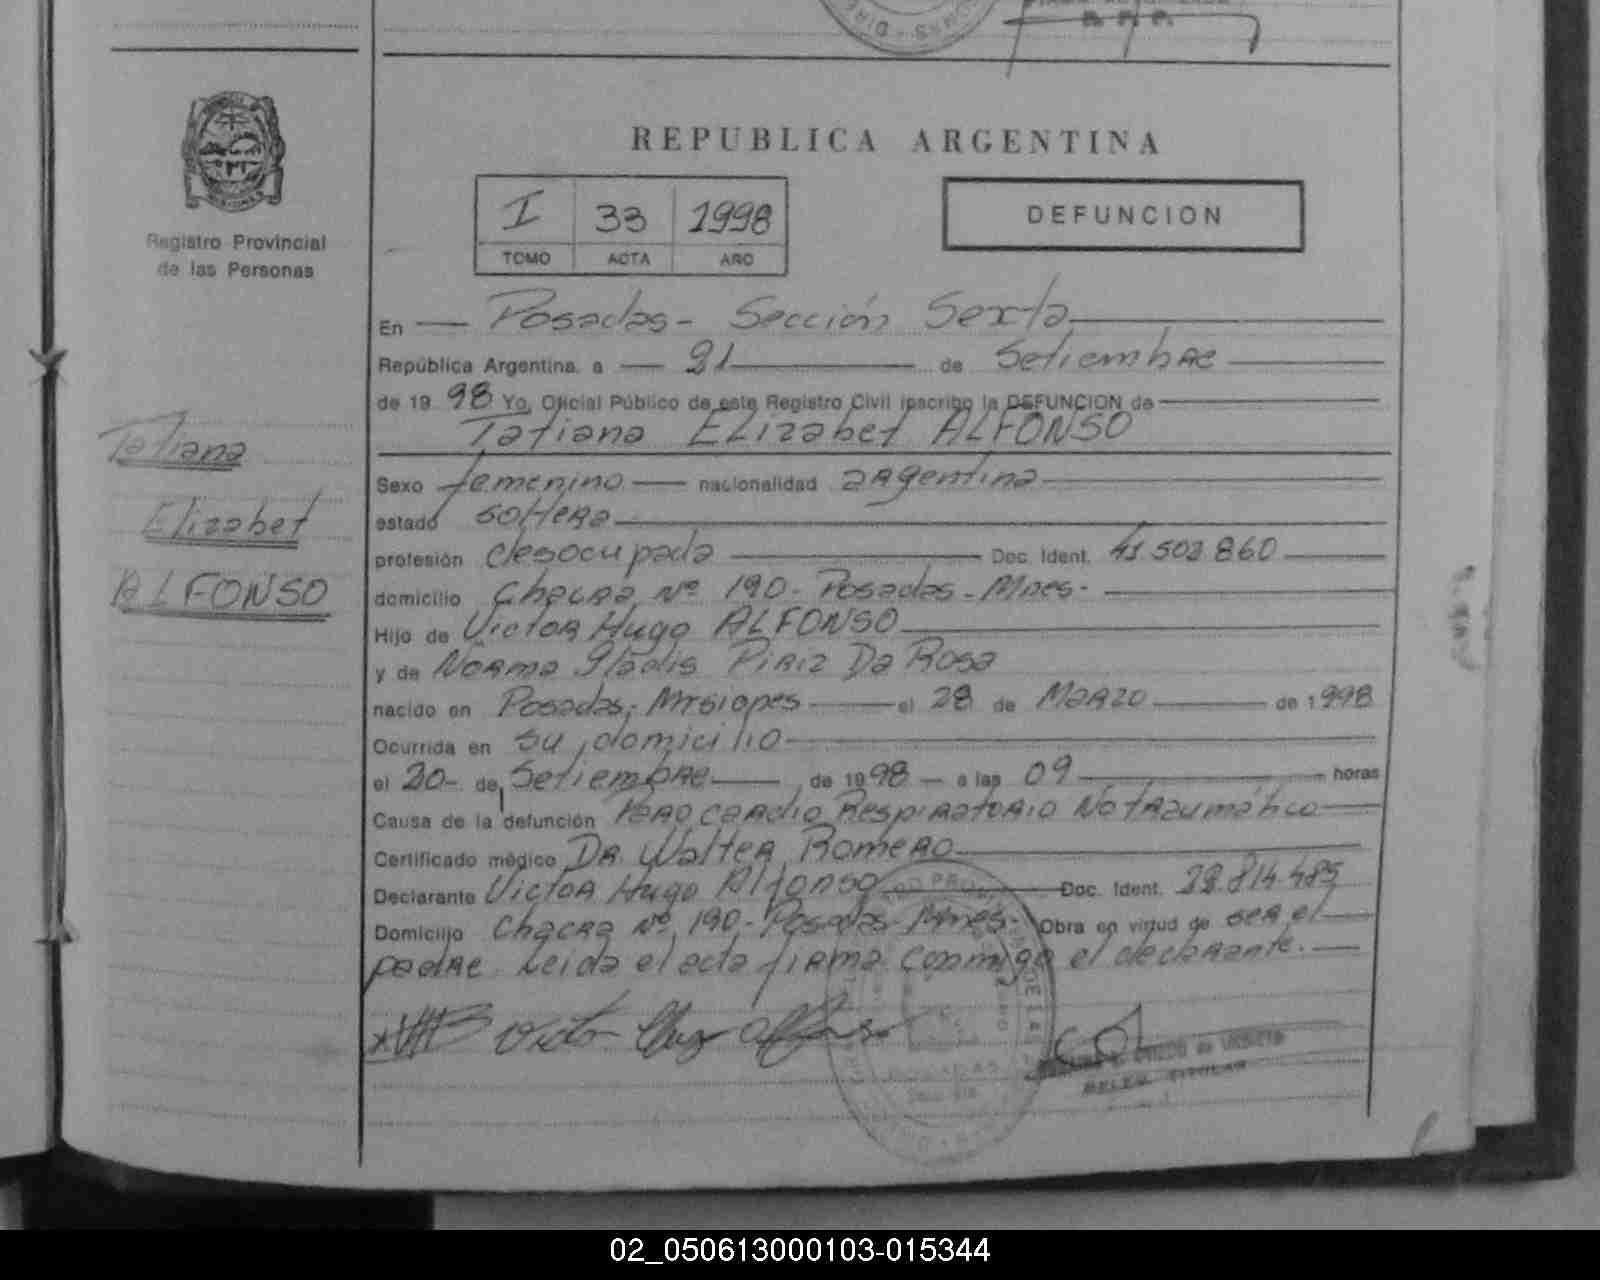 REPUBLICA ARGENTINA
I 33 1998
TOMO ACTA AÑO
DEFUNCION
Registro Provincial
de las Personas
Tatiana
Elizabet
ALFONSO
En Posadas - Sección Sexta
República Argentina, a 21 de Setiembre
de 19 98 Yo, Oficial Público de este Registro Civil inscribo la DEFUNCION de
Tatiana Elizabet ALFONSO
Sexo femenino nacionalidad argentina
estado soltera
profesión desocupada Doc. Ident. 41.502.860
domicilio Chacra Nº 190 - Posadas - Mnes -
Hijo de Victor Hugo ALFONSO
y de Norma Gladis Piriz Da Rosa
nacido en Posadas, Misiones el 28 de Marzo de 1998
Ocurrida en su domicilio
el 20 - de Setiembre de 1998 - a las 09 horas
Causa de la defunción Paro cardio Respiratorio No traumático
Certificado médico Dr. Walter Romero
Declarante Victor Hugo Alfonso Doc. Ident. 28.814.485
Domicilio Chacra Nº 190 - Posadas - Mnes - Obra en virtud de ser el
padre. Leida el acta firma conmigo el declarante.
Victor Hugo Alfonso
TITULAR
02_050613000103-015344